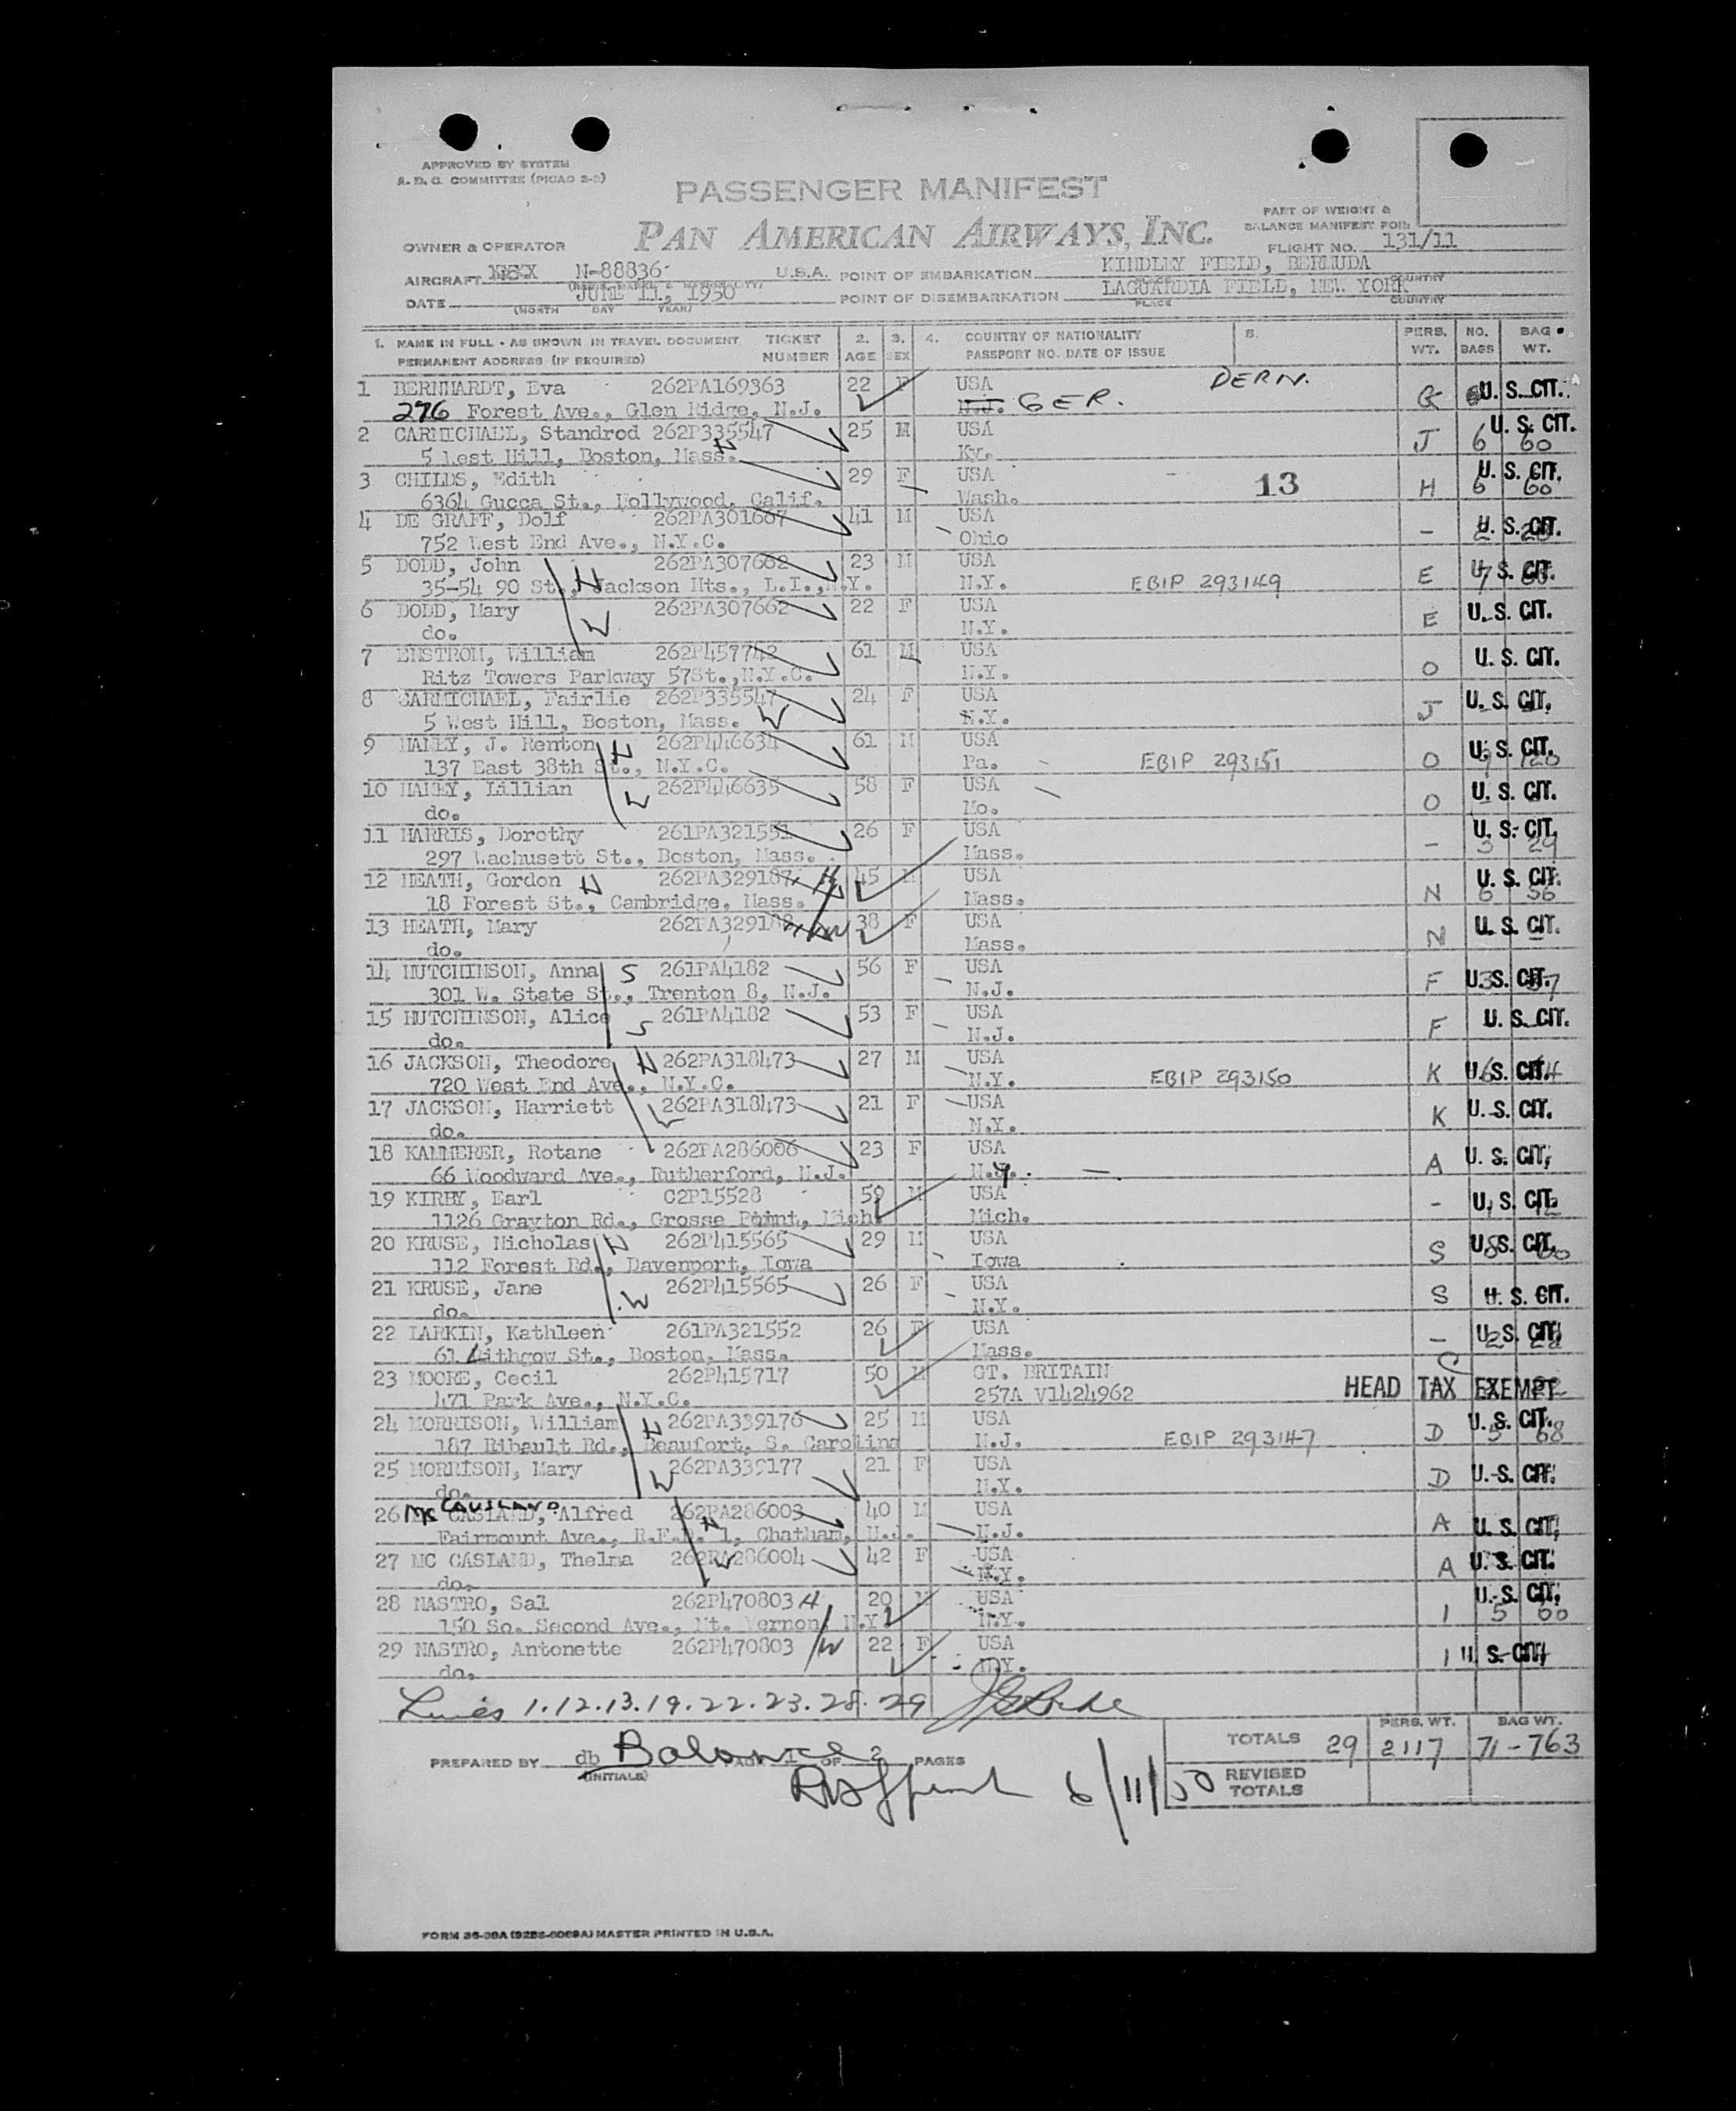 APPROVED BY SYSTEM
A. D. C. COMMITTEE (PICAO 2-2)
PASSENGER MANIFEST
PAN AMERICAN AIRWAYS, INC.
PART OF WEIGHT &
BALANCE MANIFEST FOR:
OWNER & OPERATOR
FLIGHT NO. 131/11
AIRCRAFT N-88836 U.S.A. POINT OF EMBARKATION KINDLEY FIELD, BERMUDA
COUNTRY
DATE JUNE 11, 1950 POINT OF DISEMBARKATION LAGUARDIA FIELD, NEW YORK
(MONTH DAY YEAR) PLACE COUNTRY
1. NAME IN FULL - AS SHOWN IN TRAVEL DOCUMENT TICKET 2. 3. 4. COUNTRY OF NATIONALITY 5. PERS. NO. BAG
PERMANENT ADDRESS (IF REQUIRED) NUMBER AGE SEX PASSPORT NO. DATE OF ISSUE WT. BAGS WT.
1 BERNHARDT, Eva 262PA169363 22 F USA DERN. G U. S. CIT.
276 Forest Ave., Glen Ridge, N.J. N.J. GER.
2 CARMICHAEL, Standrod 262P335547 25 M USA J 6 60 U. S. CIT.
5 West Hill, Boston, Mass. Ky.
3 CHILDS, Edith 29 F USA 13 H 6 60 U. S. CIT.
6364 Gucca St., Hollywood, Calif. Wash.
4 DE GRAFF, Dolf 262PA301667 41 M USA - U. S. CIT.
752 West End Ave., N.Y.C. Ohio
5 DODD, John H 262PA307662 23 M USA E U. S. CIT.
35-54 90 St., Jackson Hts., L.I., N.Y. N.Y. EBIP 293149
6 DODD, Mary W 262PA307662 22 F USA E U. S. CIT.
do. N.Y.
7 ENSTROM, William 262P457742 61 M USA O U. S. CIT.
Ritz Towers Parkway 57St., N.Y.C. N.Y.
8 CARMICHAEL, Fairlie 262P335547 24 F USA J U. S. CIT.
5 West Hill, Boston, Mass. W N.Y.
9 HALEY, J. Renton H 262P446634 61 M USA O U. S. CIT.
137 East 38th St., N.Y.C. Pa. EBIP 293151
10 HALEY, Lillian W 262P446635 58 F USA O U. S. CIT.
do. Mo.
11 HARRIS, Dorothy 261PA321551 26 F USA - 3 29 U. S. CIT.
297 Wachusett St., Boston, Mass. Mass.
12 HEATH, Gordon H 262PA329187 H 45 M USA N 6 56 U. S. CIT.
18 Forest St., Cambridge, Mass. Mass.
13 HEATH, Mary 262PA329188 W 38 F USA N U. S. CIT.
do. Mass.
14 HUTCHINSON, Anna S 261PA4182 56 F USA F U. S. CIT.
301 W. State St., Trenton 8, N.J. N.J.
15 HUTCHINSON, Alice S 261PA4182 53 F USA F U. S. CIT.
do. N.J.
16 JACKSON, Theodore H 262PA318473 27 M USA K U. S. CIT.
720 West End Ave., N.Y.C. N.Y. EBIP 293150
17 JACKSON, Harriett 262PA318473 21 F USA K U. S. CIT.
do. N.Y.
18 KAMMERER, Rotane 262PA286006 23 F USA A U. S. CIT.
66 Woodward Ave., Rutherford, N.J. N.Y.
19 KIRBY, Earl C2P15528 59 M USA - U. S. CIT.
1126 Grayton Rd., Grosse Point, Mich. Mich.
20 KRUSE, Nicholas H 262P415565 29 M USA S U. S. CIT.
112 Forest Rd., Davenport, Iowa Iowa
21 KRUSE, Jane W 262P415565 26 F USA S U. S. CIT.
do. N.Y.
22 LARKIN, Kathleen 261PA321552 26 F USA - U. S. CIT.
61 Lithgow St., Boston, Mass. Mass.
23 MOORE, Cecil 262P415717 50 M GT. BRITAIN C HEAD TAX EXEMPT
471 Park Ave., N.Y.C. 257A V1424962
24 MORRISON, William H 262PA339176 25 M USA D U. S. CIT.
187 Ribault Rd., Beaufort, S. Carolina N.J. EBIP 293147
25 MORRISON, Mary W 262PA339177 21 F USA D U. S. CIT.
do. N.Y.
26 Mc CAUSLAND CASLAND, Alfred 262PA286003 40 M USA A U. S. CIT.
Fairmount Ave., R.F.D. 1, Chatham, N.J. N.J.
27 MC CASLAND, Thelma 262PA286004 W 42 F USA A U. S. CIT.
do. N.Y.
28 NASTRO, Sal 262P470803 H 20 M USA I 5 60 U. S. CIT.
150 So. Second Ave., Mt. Vernon, N.Y. N.Y.
29 NASTRO, Antonette 262P470803 W 22 F USA I U. S. CIT.
do. N.Y.
Lines 1.12.13.19.22.23.28.29
PREPARED BY db Balance PAGE 1 OF 2 PAGES
(INITIALS)
6/11/50
PERS. WT. BAG WT.
TOTALS 29 2117 71-763
REVISED
TOTALS
FORM 35-39A (9285-6089A) MASTER PRINTED IN U.S.A.